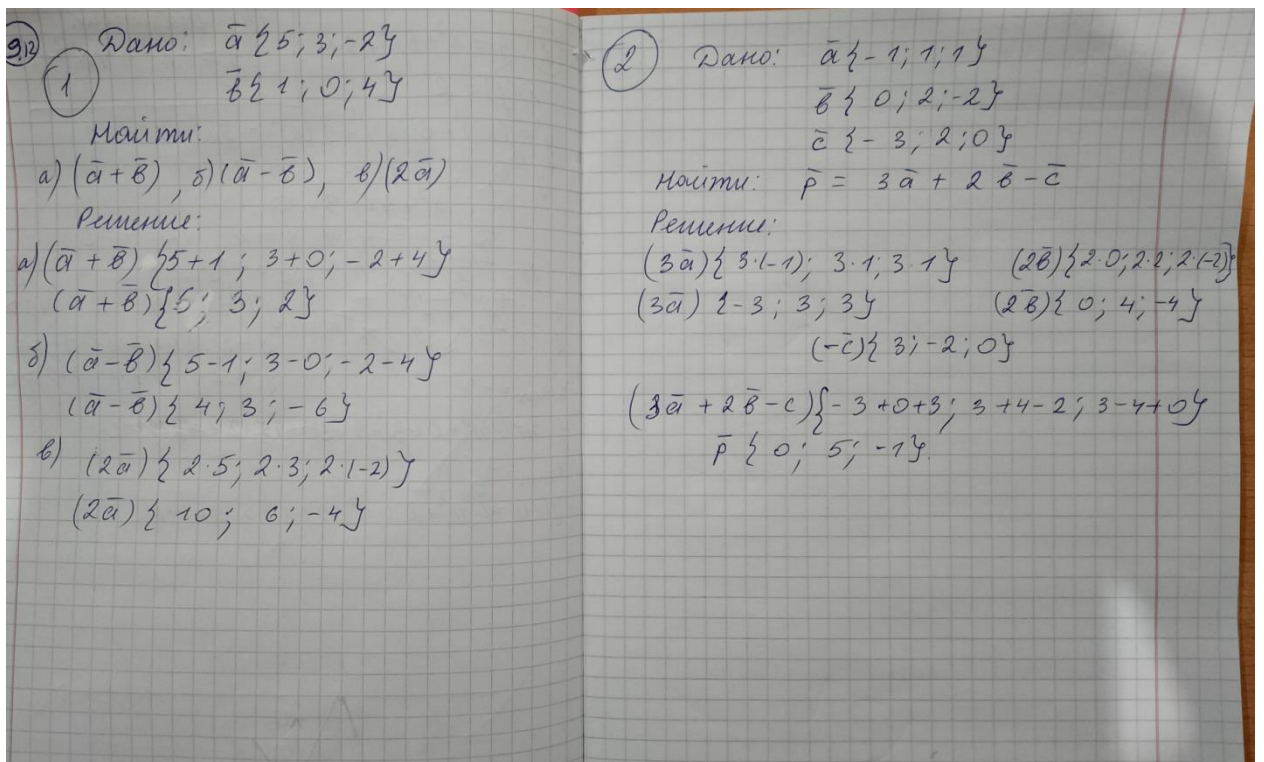 9,12
1
Дано: ā {5; 3; -2}
в̄ { 1 ; 0 ; 4}
Найти:
а) (ā + в̄) , б) (ā - в̄), в) (2ā)
Решение:
а) (ā + в̄) {5+1 ; 3+0; -2+4}
(ā + в̄) {6; 3; 2}
б) (ā - в̄) { 5-1; 3-0; -2-4}
(ā - в̄) { 4; 3; -6}
в) (2ā) { 2·5; 2·3; 2·(-2)}
(2ā) { 10; 6; -4}
2
Дано: ā {-1; 1; 1}
в̄ { 0; 2; -2}
c̄ {- 3; 2; 0}
Найти: p̄ = 3ā + 2в̄ - c̄
Решение:
(3ā) { 3·(-1); 3·1; 3·1} (2в̄) {2·0; 2·2; 2·(-2)}
(3ā) {-3; 3; 3} (2в̄) { 0; 4; -4}
(-c̄) { 3; -2; 0}
(3ā + 2в̄ - c) {- 3+0+3; 3+4-2; 3-4+0}
p̄ { 0; 5; -1}.